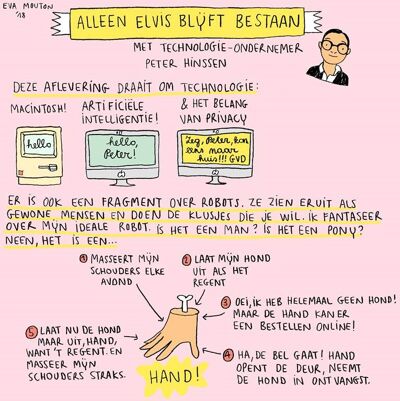 EVA MOUTON
'18
ALLEEN ELVIS BLIJFT BESTAAN
MET TECHNOLOGIE-ONDERNEMER
PETER HINSSEN
DEZE AFLEVERING DRAAIT OM TECHNOLOGIE:
MACINTOSH!
hello
ARTIFICIËLE
INTELLIGENTIE!
hello,
Peter!
& HET BELANG
VAN PRIVACY
Zeg, Peter, kom
eens naar
huis!!! GVD
ER IS OOK EEN FRAGMENT OVER ROBOTS. ZE ZIEN ERUIT ALS
GEWONE MENSEN EN DOEN DE KLUSJES DIE JE WIL. IK FANTASEER
OVER MIJN IDEALE ROBOT. IS HET EEN MAN? IS HET EEN PONY?
NEEN, HET IS EEN...
1 MASSEERT MIJN
SCHOUDERS ELKE
AVOND
2 LAAT MIJN HOND
UIT ALS HET
REGENT
3 OEI, IK HEB HELEMAAL GEEN HOND!
MAAR DE HAND KAN ER
EEN BESTELLEN ONLINE!
4 HA, DE BEL GAAT! HAND
OPENT DE DEUR, NEEMT
DE HOND IN ONTVANGST.
5 LAAT NU DE HOND
MAAR UIT, HAND,
WANT 'T REGENT. EN
MASSEER MIJN
SCHOUDERS STRAKS.
HAND!